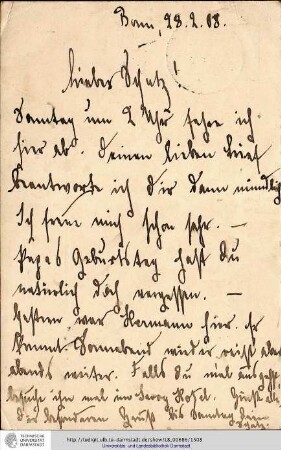 Bonn, 28.2.08.
Lieber Schatz!
Samstag um 2 Uhr fahre ich
hier ab. Deinen lieben Brief
beantworte ich Dir dann mündlich
Ich freue mich schon sehr. —
Papas Geburtstag hast Du
natürlich doch vergessen. —
Gestern war Hermann hier. Er
kommt Sonnabend wieder reist aber
abends weiter. Falls Du mal ausgehst,
besuche ihn mal im Hotel. Grüße alle
Dir besonderen Gruß bis Samstag Dein
Schatz.
TECHNISCHE
UNIVERSITÄT
DARMSTADT
http://tudigit.ulb.tu-darmstadt.de/show/
Universitäts- und Landesbibliothek Darmstadt